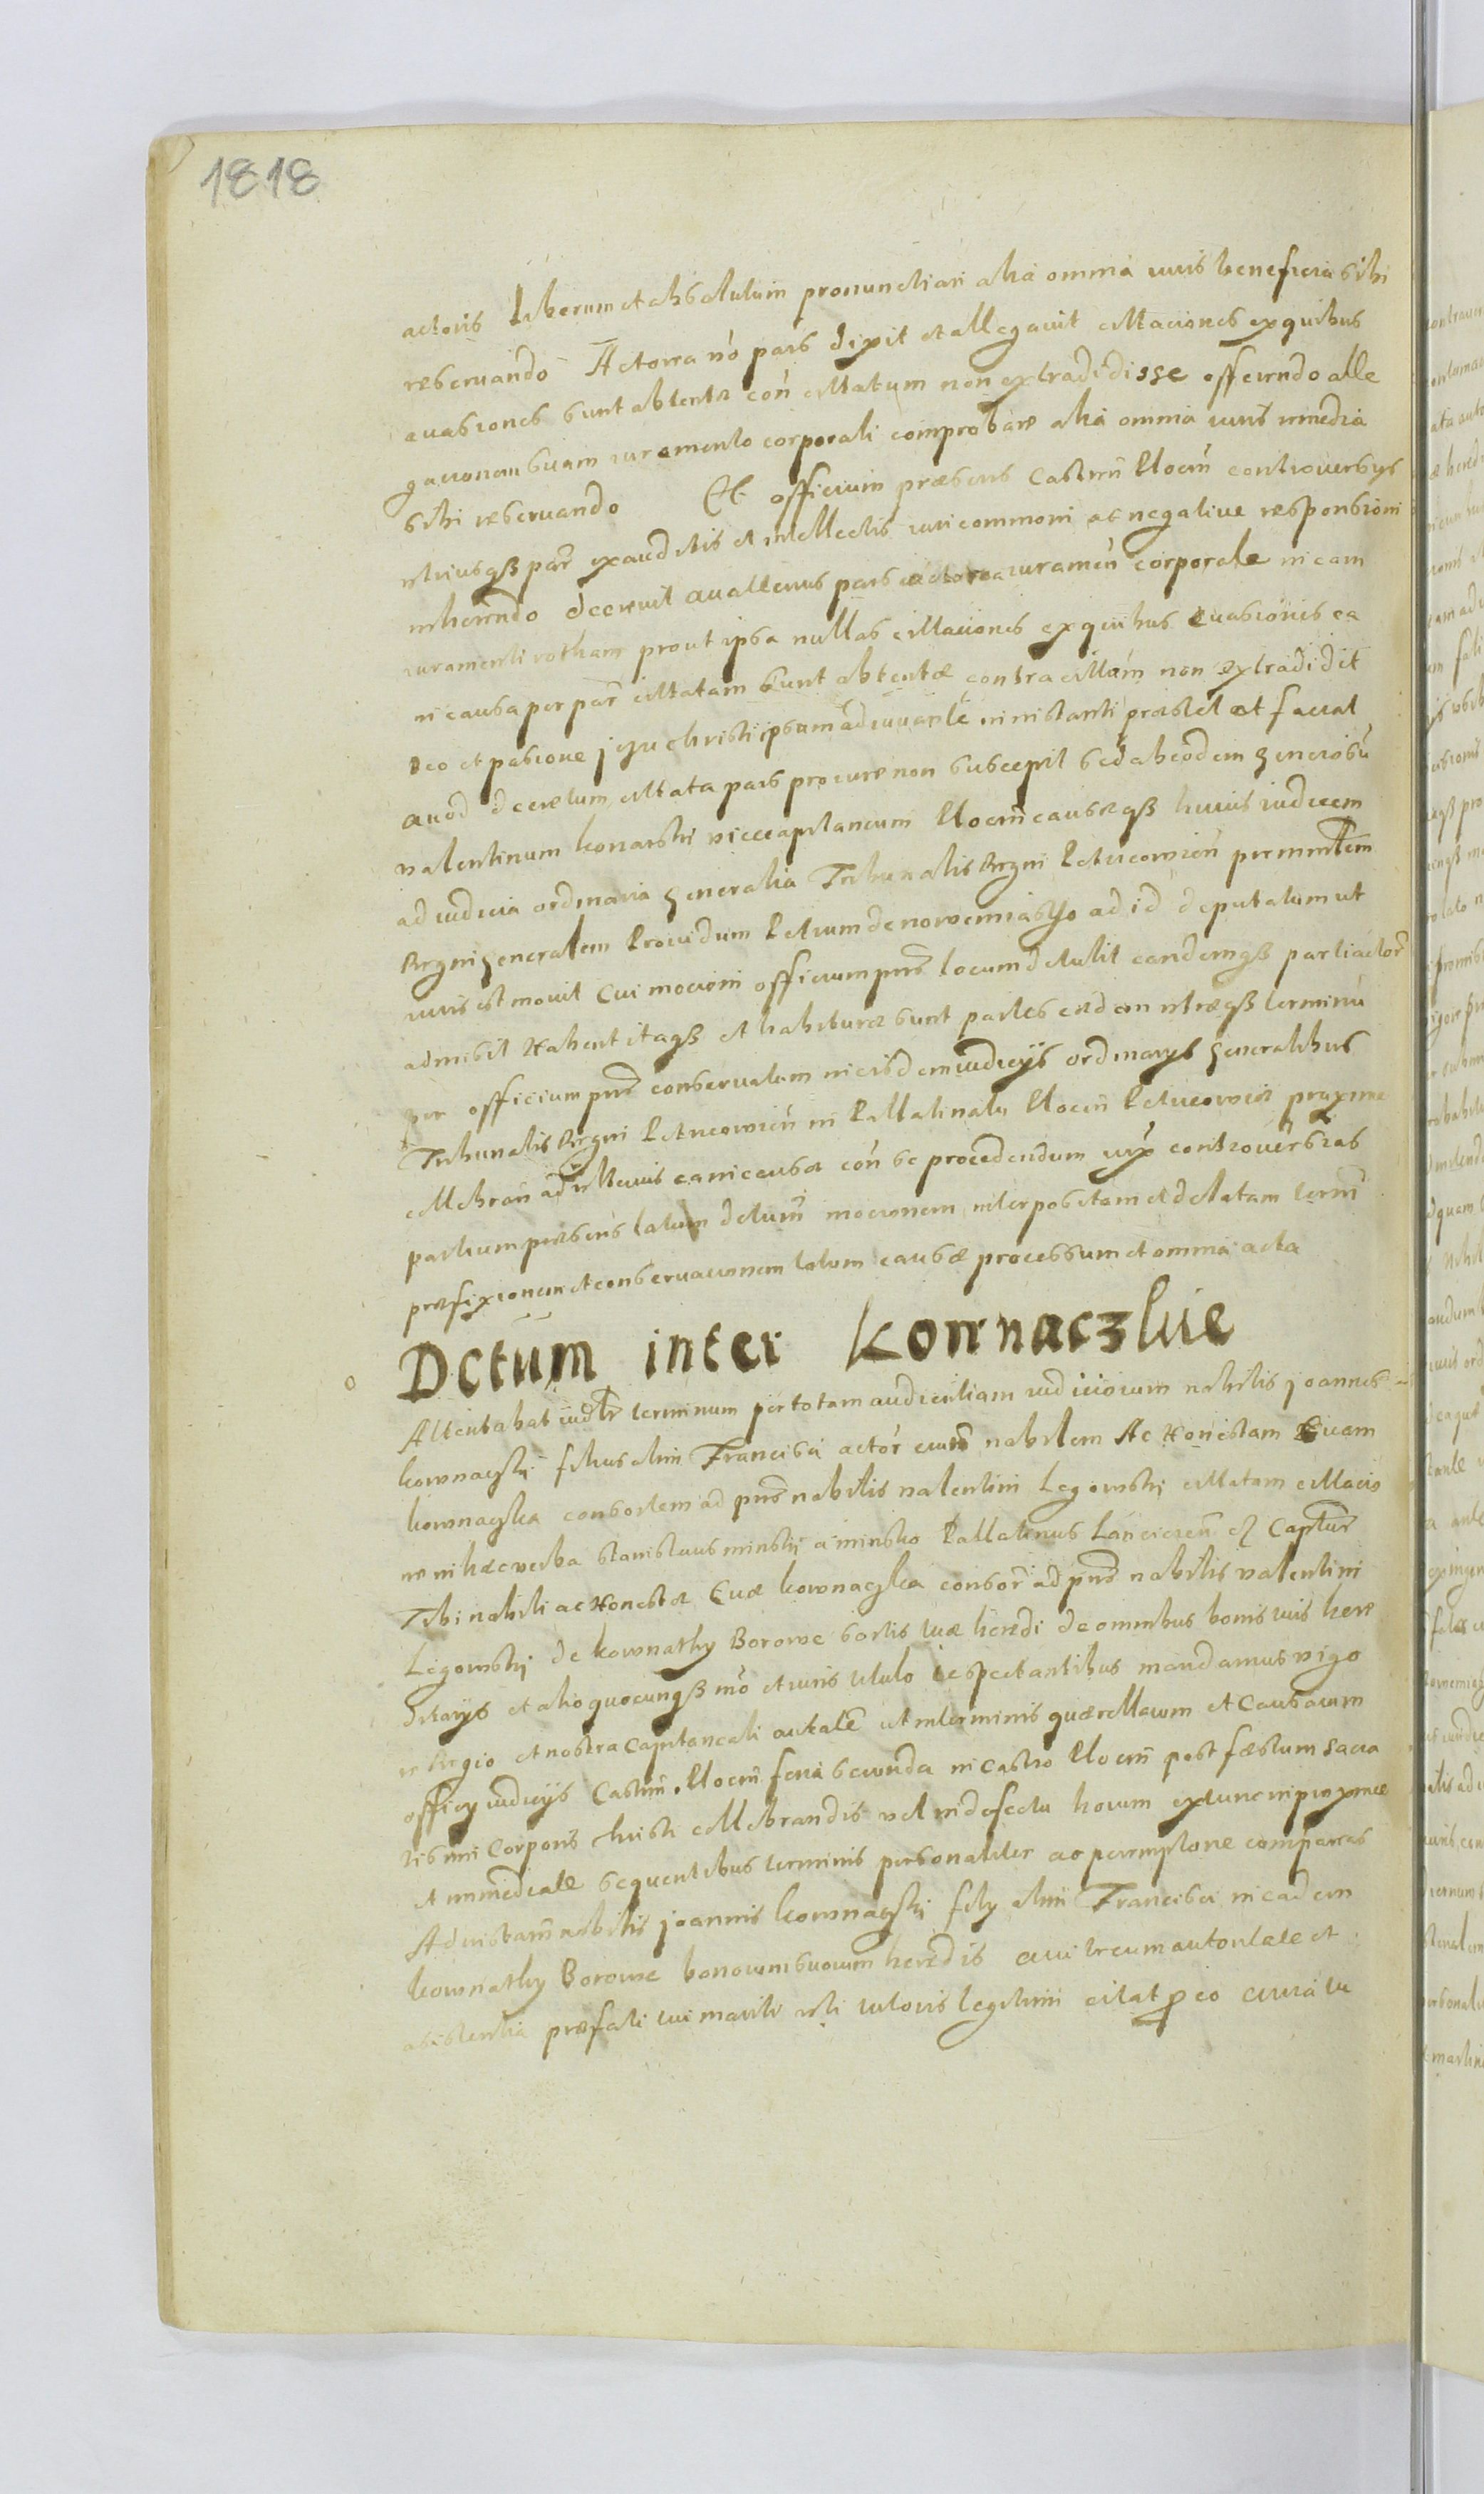 1818
actoris liberum et absolutum pronunctiari alia omnia iuris beneficia sibi
reservando Actorea vo pars dixit et allegavit cittaciones ex quibus
evasiones sunt abtentæ con cittatum non extradidisse offerendo alle
gacionem suam iuramento corporali comprobare alia omnia iuris remedia
sibi reservando Et officium præsens Castren Plocen controversys
utriusqß par exauditis et intellectis iuri commoni ac negative responsioni
inherendo decrevit quattenus pars actorea iuramen corporale in eam
iuramenti rotham prout ipsa nullas cittaciones ex quibus evasiones ea
in causa per par cittatam sunt abtentæ contra cittam non extradidit
deo et pasione jesu christi ipsum adiuvante in instanti præstet et faciat
Quod decretum cittata pars procure non suscepit sed ab eodem generosu
valentinum konarski vicecapitaneum Plocen causæqß huius iudicem
ad iudicia ordinaria generalia Tribunalis Regni Petricovien per ministem
Regni generalem Providum Petrum de nowemiasto ad id deputatum ut
iuris est movit Cui mocioni officium pns locum detulit eandemqß parti actor
admisit Habent itaqß et habituræ sunt partes eædem utræqß terminu
per officium pns conservatum in eisdem iudicys ordinarys generalibus
Tribunalis Regni Petricovien in Pallatinatu Plocen Petricoviæ proxime
cellebran ad ulterius ea in causa con se procedendum iux controversias
partium præsens latum detum mocionem interpositam et delatam term
præfixionem et conservacionem totum causæ processum et omnia acta
Dctum inter Kownaczkie
Attentabat iudlr terminum per totam audientiam iudiciorum nobilis joannes
kownaczki filius olim Francisci actor euis nobilem Ac Honestam Evam
kownaczka consortem ad pns nobilis valentini Legowski cittatam cittacio
ne in hæc verba stanislaus minski a minsko Pallatinus Lancicien Capter
Tibi nobili ac Honestæ Evæ kownaczka consor ad pns nobilis valentini
Legowski de kownathy Borowe sortis tuæ heredi de omnibus bonis tuis here
ditarys et alio quocunqß mo et iuris titulo te spectantibus mandamus vigo
re Regio et nostra Capitaneali autate ut in terminis quærellarum et Causarum
officy iudicys Castren. Plocen feria secunda in Castro Plocen post fæstum sacra
tissimi Corporis christi cellebrandis vel in defectu horum extunc in proxime
et immediate sequentibus terminis personaliter ac peremptorie compareas
Ad instam nobilis joannis kownaczki fily olim Francisci in eadem
kownathy Borowe bonorum suorum heredis qui te cum autoritate et
assistentia præfati tui mariti uti tutoris legitimi citat p eo quia tu